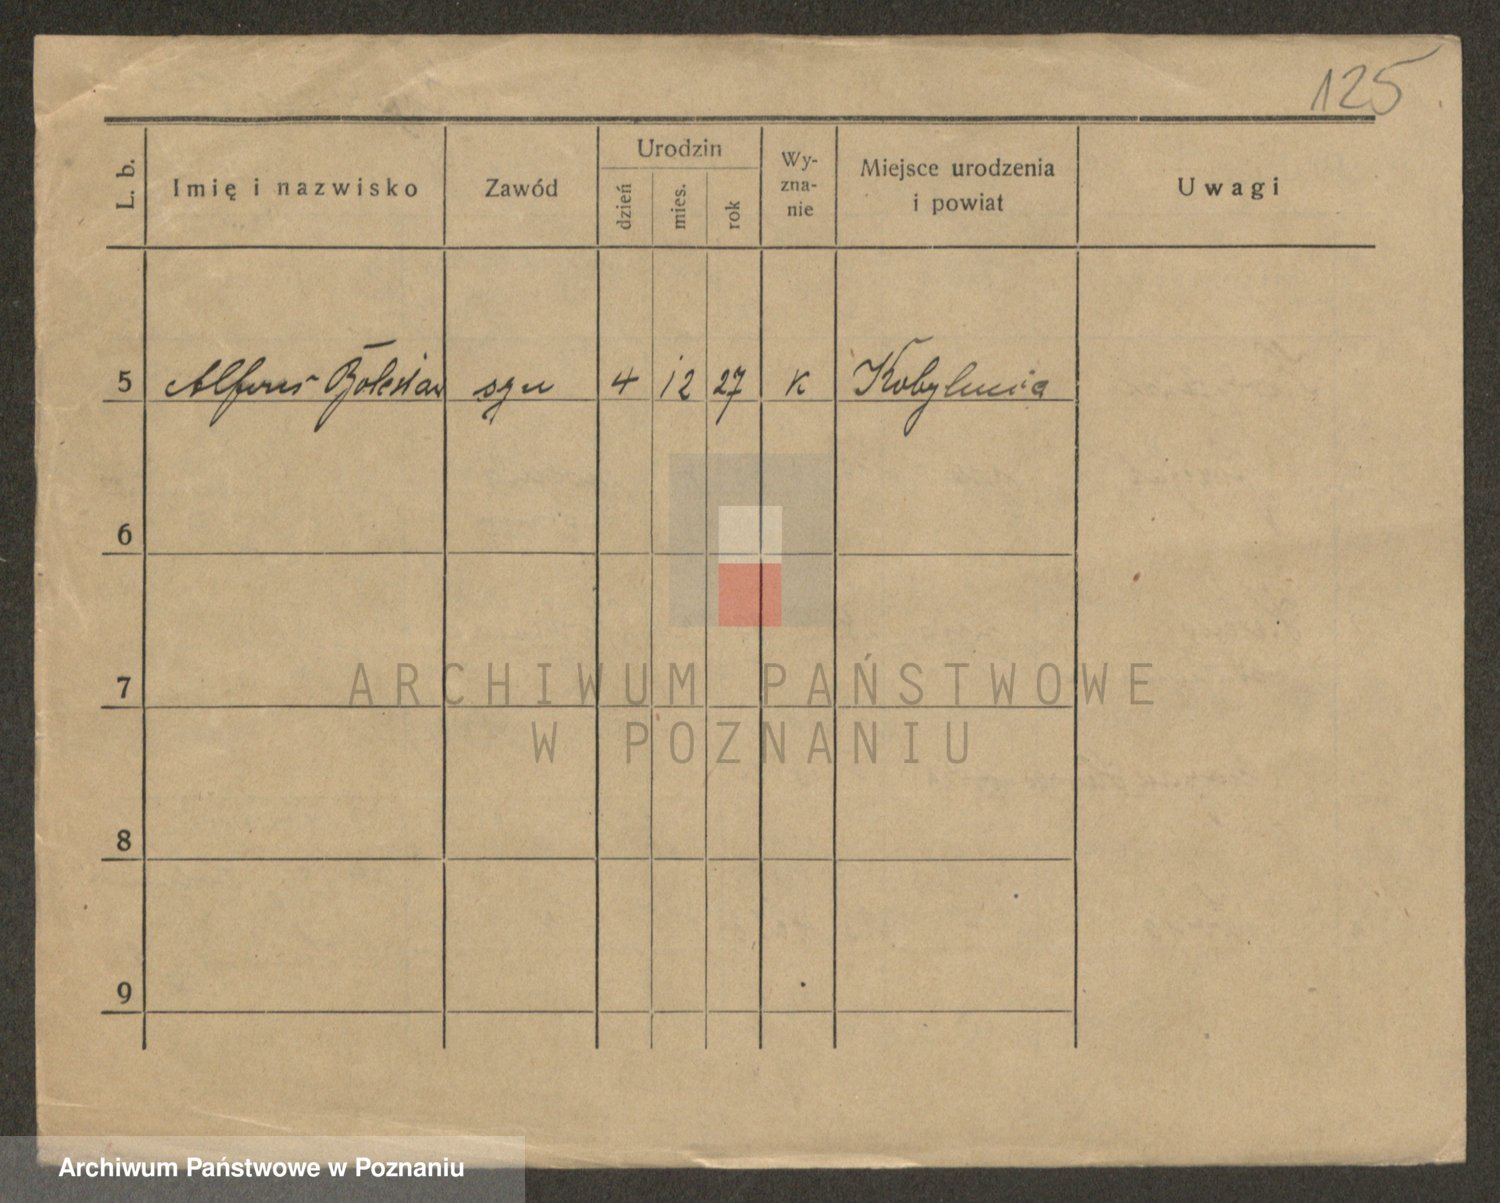 125.
L. b.
Imię i nazwisko
Zawód
Urodzin
dzień
mies.
rok
Wy-
zna-
nie
Miejsce urodzenia
i powiat
Uwagi
5 Alfons Bolesław syn 4 12 27 K Kobylnica
6
7
8
9
ARCHIWUM PAŃSTWOWE
W POZNANIU
Archiwum Państwowe w Poznaniu